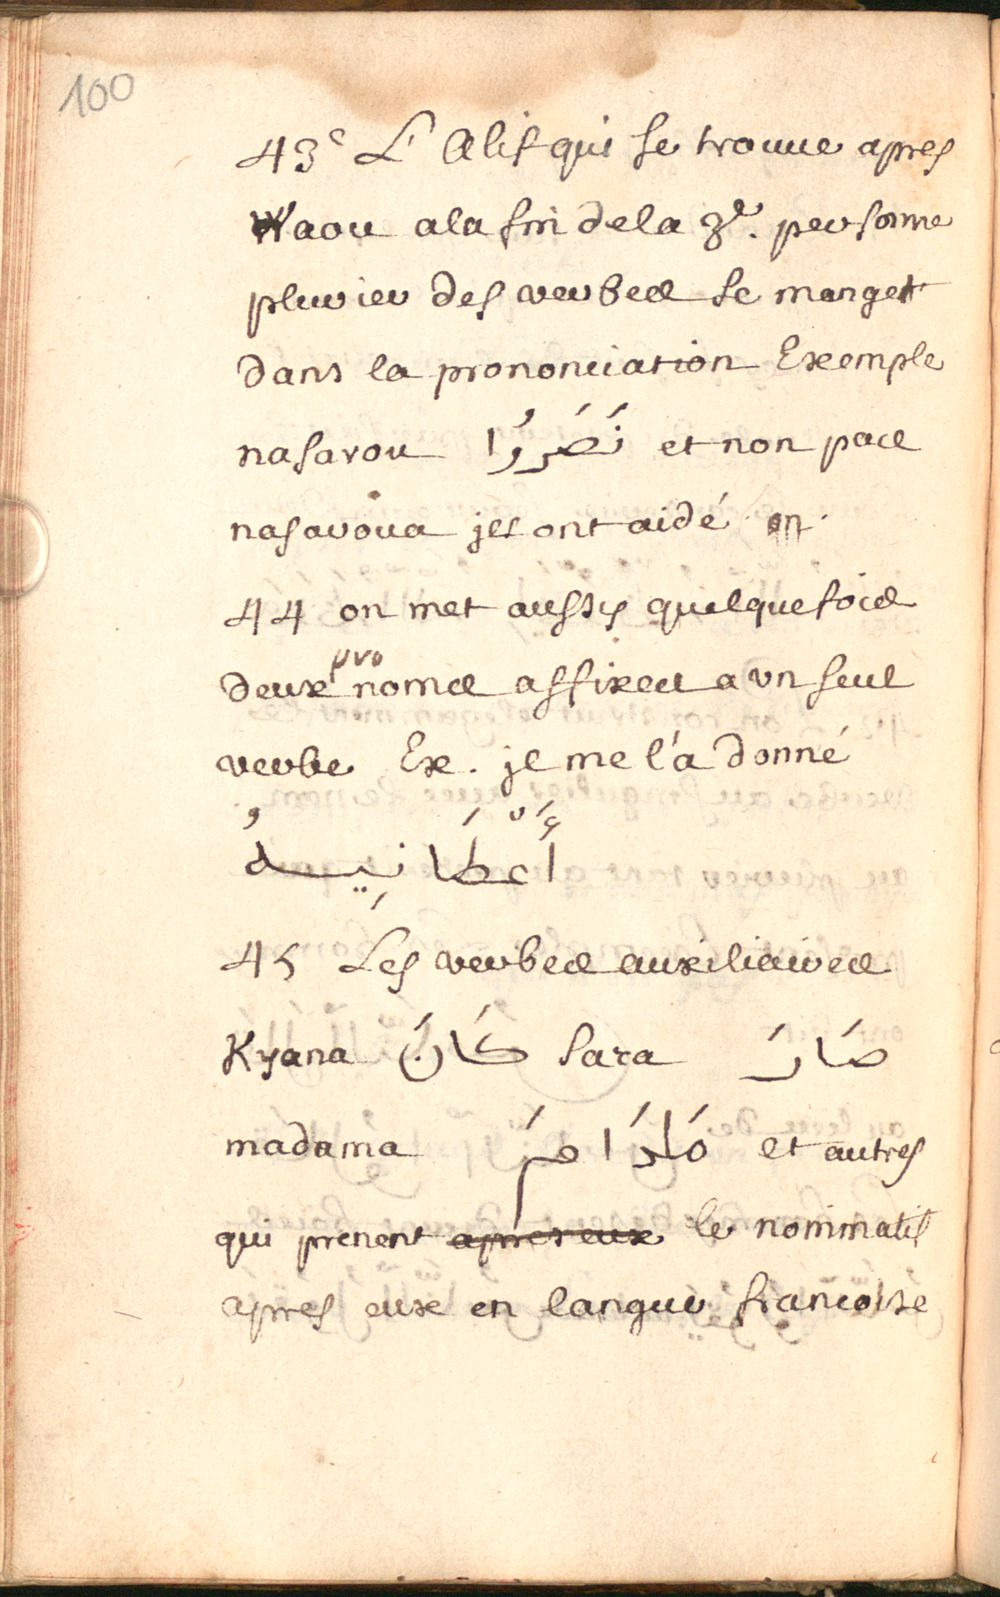 100
43e L'Alif qui se trouue apres
Waou a la fin de la 3e. personne
plurier des verbes se manget
dans la prononciation Exemple
nasarou نَصَرُوا et non pas
nasaroua jls ont aidé
44 on met aussy quelquefois
deux pronoms affixes a vn seul
verbe Ex. jl me l'a donné
أَعْطَانِيهُ
45 Les verbes auxiliaires
Kyana كَانَ sara صَارَ
madama مَادَامَ et autres
qui prenent apres eux le nominatif
apres eux en langue francoise